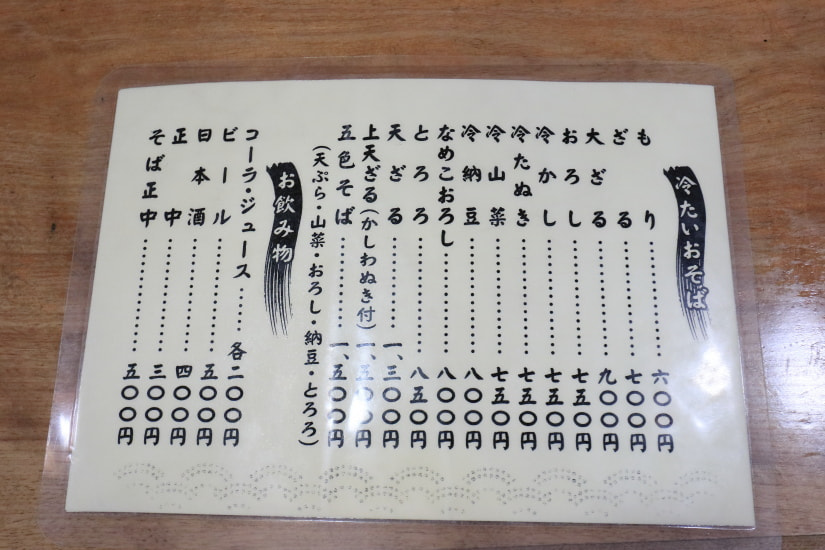 冷たいおそば
もり……………六〇〇円
ざる……………七〇〇円
大ざる……………九〇〇円
おろし……………七五〇円
冷かし……………七五〇円
冷たぬき……………七五〇円
冷山菜……………七五〇円
冷納豆……………八〇〇円
なめこおろし……………八〇〇円
とろろ……………八五〇円
天ざる……………一、三〇〇円
上天ざる(かしわぬき付)一、五〇〇円
五色そば……………一、五〇〇円
(天ぷら・山菜・おろし・納豆・とろろ)
お飲み物
コーラ・ジュース……各二〇〇円
ビール……………五〇〇円
日本酒……………四〇〇円
正中……………三〇〇円
そば正中……………五〇〇円